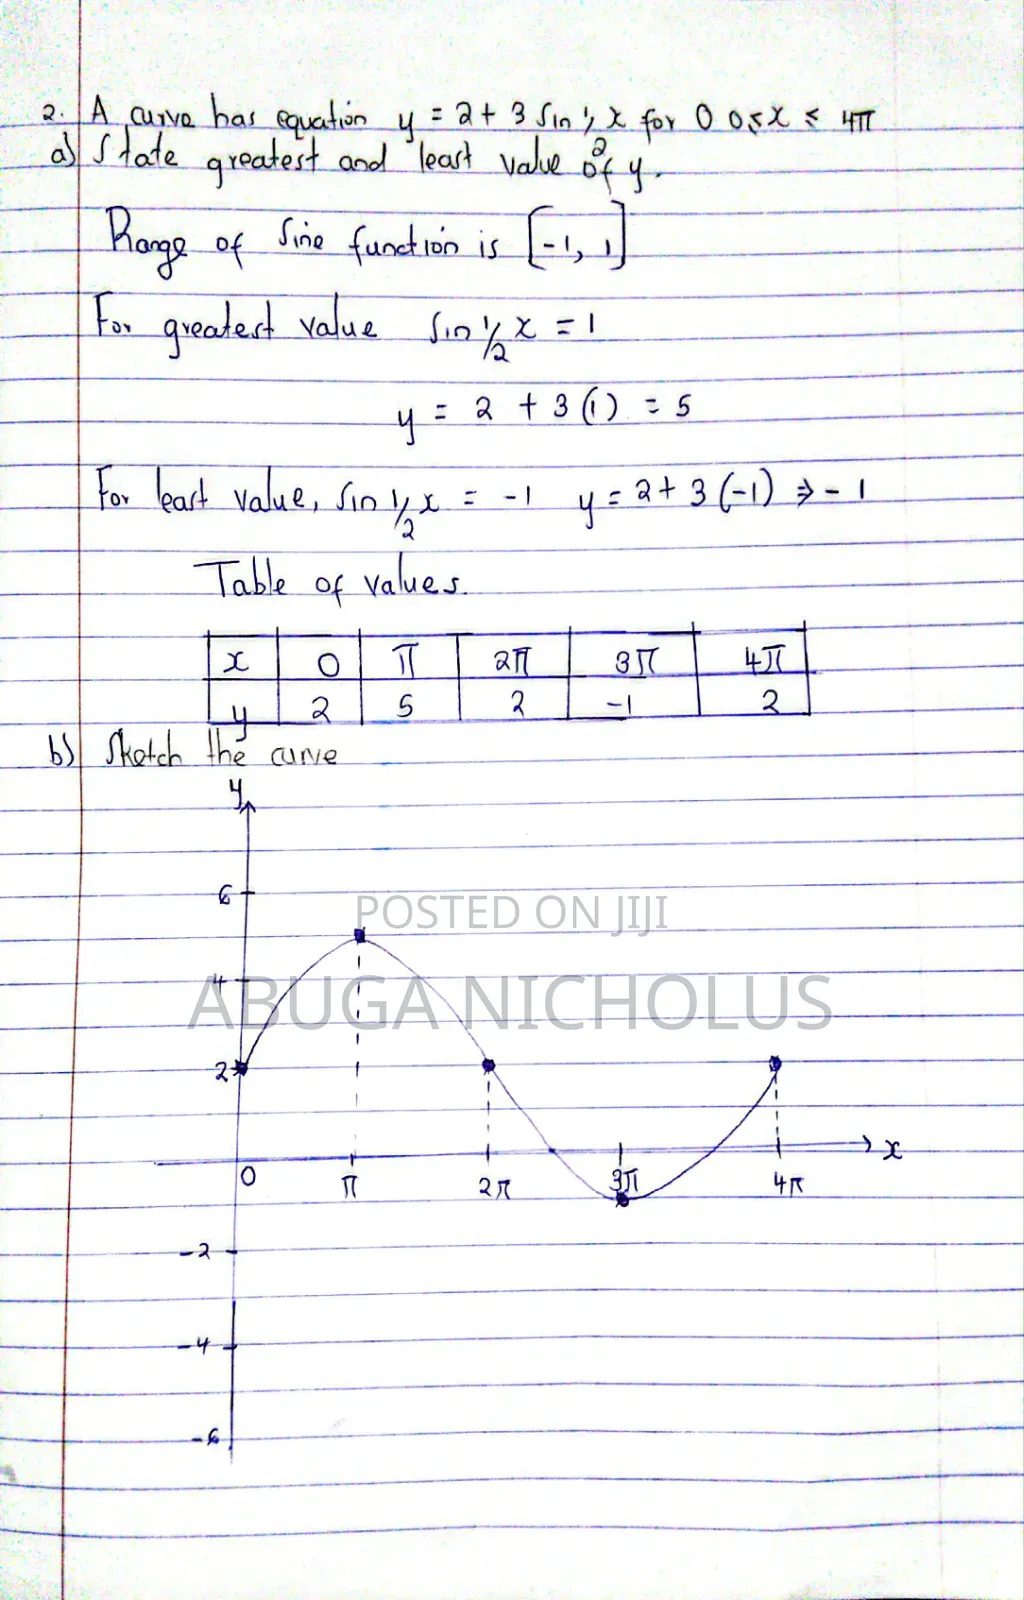 2. A curve has equation y = 2 + 3 Sin 1/2 x for 0 0 ≤ x ≤ 4π
a) State greatest and least value of y.
Range of Sine function is [-1, 1]
For greatest value Sin 1/2 x = 1
y = 2 + 3(1) = 5
For least value, Sin 1/2 x = -1 y = 2 + 3(-1) ⇒ -1
Table of values.
x 0 π 2π 3π 4π
y 2 5 2 -1 2
b) Sketch the curve
y
6
POSTED ON JIJI
4
ABUGA NICHOLUS
2
x
0 π 2π 3π 4π
-2
-4
-6